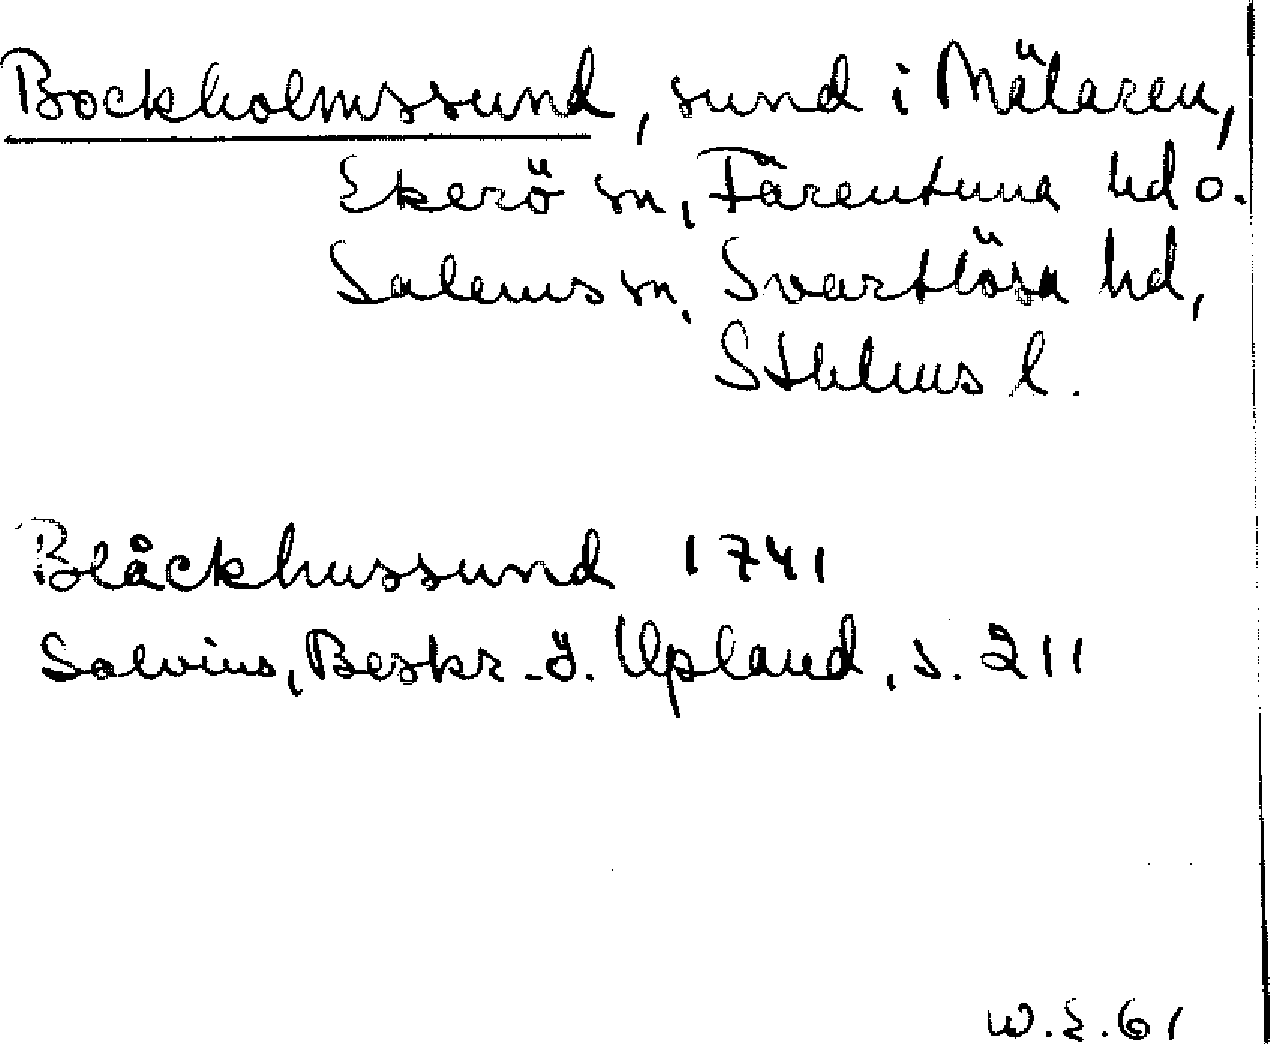 Bockholmssund, sund i Mälaren,
Ekerö sn, Färentuna hd o.
Salems sn, Svartlösa hd,
Sthlms l.
Blåckhussund 1741
Salvius, Beskr. ö. Upland, s. 211
W.E.61